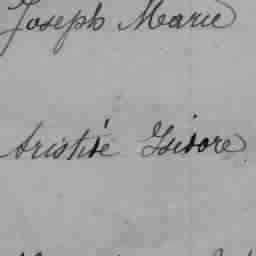 Joseph Marie
Aristide Isidore